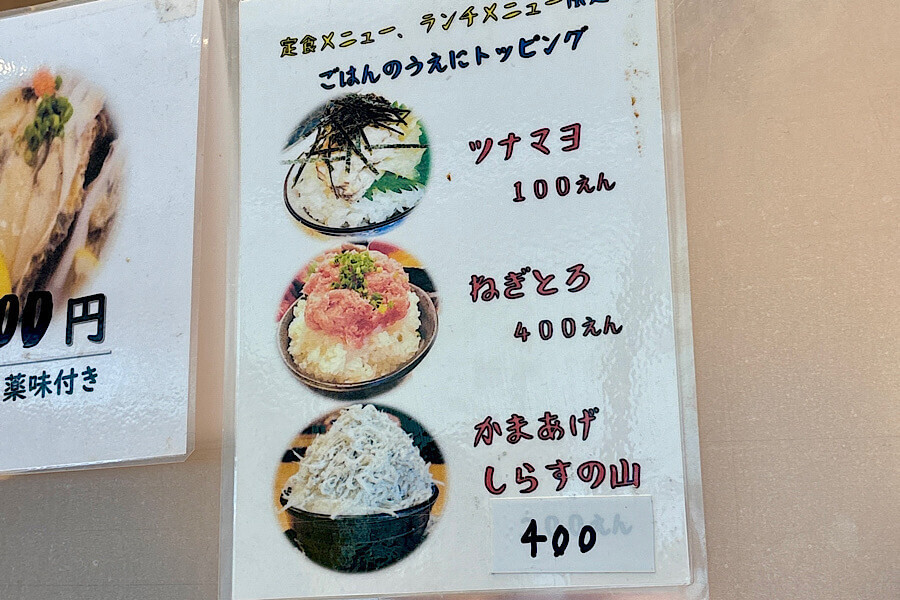 定食メニュー、ランチメニュー限定
ごはんのうえにトッピング
ツナマヨ
100えん
ねぎとろ
400えん
かまあげ
しらすの山
400
00円
薬味付き